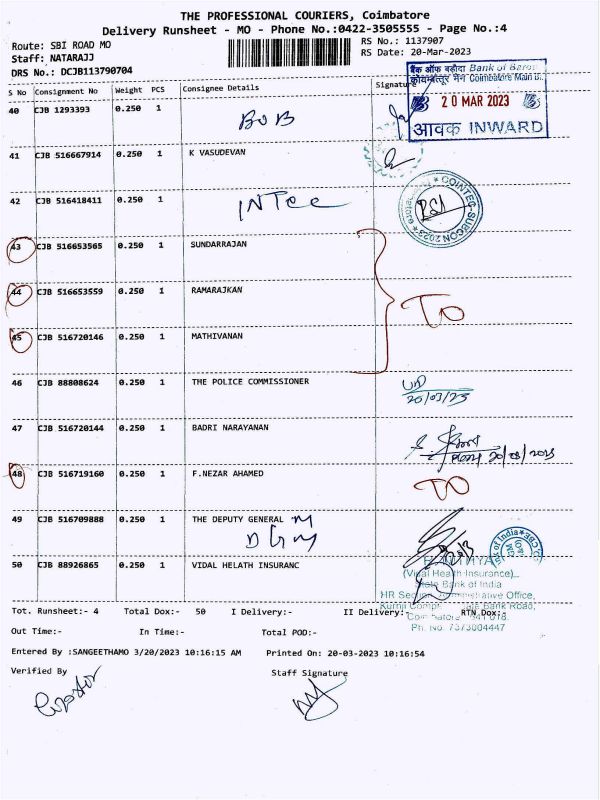 THE PROFESSIONAL COURIERS, Coimbatore
Delivery Runsheet - MO - Phone No.:0422-3505555 - Page No.:4
Route: SBI ROAD MO
RS No.: 1137907
Staff: NATARAJJ
RS Date: 20-Mar-2023
DRS No.: DCJB113790704
S No Consignment No Weight PCS Consignee Details Signature
बैंक ऑफ बड़ौदा Bank of Baroda
कोयम्बत्तूर मेन Coimbatore Main Br.
20 MAR 2023
आवक INWARD
40 CJB 1293393 0.250 1 BOB
41 CJB 516667914 0.250 1 K VASUDEVAN
42 CJB 516418411 0.250 1 INTEC
COINTEC-SUBCON 2023
43 CJB 516653565 0.250 1 SUNDARRAJAN
44 CJB 516653559 0.250 1 RAMARAJKAN
TO
45 CJB 516720146 0.250 1 MATHIVANAN
46 CJB 88808624 0.250 1 THE POLICE COMMISSIONER
20/03/23
47 CJB 516720144 0.250 1 BADRI NARAYANAN
20/03/2023
48 CJB 516719160 0.250 1 F.NEZAR AHAMED TO
49 CJB 516709888 0.250 1 THE DEPUTY GENERAL M
DGM
50 CJB 88926865 0.250 1 VIDAL HELATH INSURANC
(Vidal Health Insurance)
State Bank of India
HR Section, Administrative Office,
State Bank Road,
Coimbatore 641 018.
Ph. No. 7373004447
Tot. Runsheet:- 4 Total Dox:- 50 I Delivery:- II Delivery:- RTN Dox:-
Out Time:- In Time:- Total POD:-
Entered By :SANGEETHAMO 3/20/2023 10:16:15 AM Printed On: 20-03-2023 10:16:54
Verified By Staff Signature